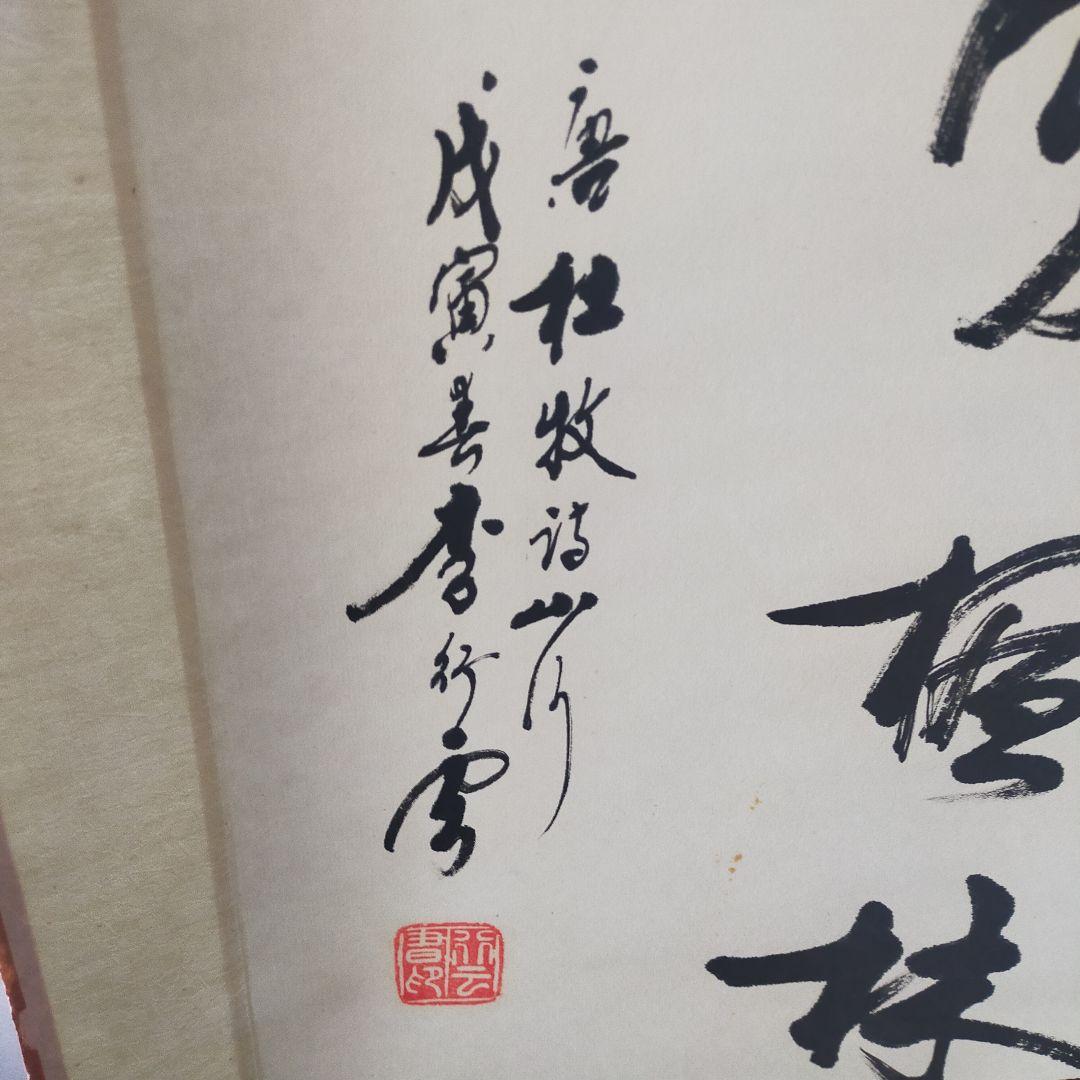 楓林
唐杜牧詩山行
戊寅春李行雲
行云
書印